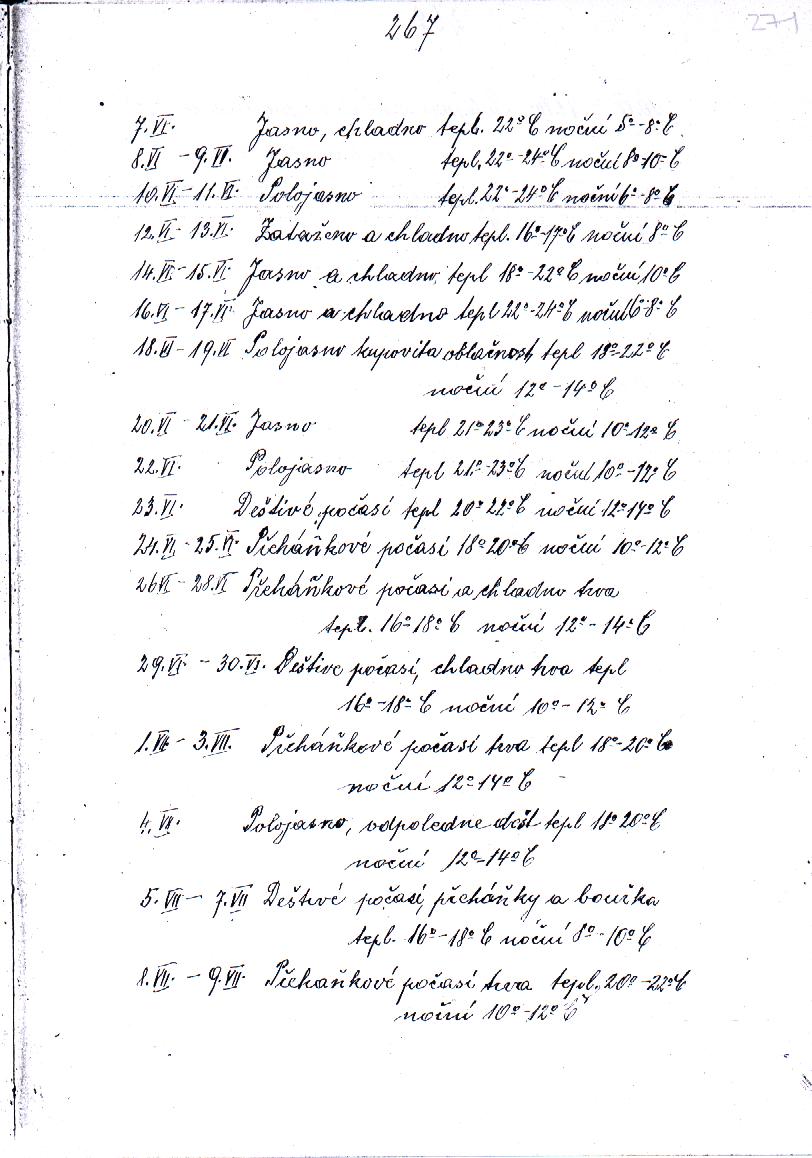 267
271
7.VI. Jasno, chladno tepl. 22° C noční 5°-8° C
8.VI - 9.VI. Jasno tepl. 22°-24° C noční 8°-10° C
10.VI - 11.VI. Polojasno tepl. 22°-24° C noční 6°-8° C
12.VI - 13.VI. Zataženo a chladno tepl. 16°-17° C noční 8° C
14.VI - 15.VI. Jasno a chladno, tepl 18°-22° C noční 10° C
16.VI - 17.VI. Jasno a chladno tepl 22°-24° C noční 6°-8° C
18.VI - 19.VI Polojasno kupovita oblačnost tepl 18°-22° C
noční 12°-14° C
20.VI - 21.VI. Jasno tepl 21°-23° C noční 10°-12° C
22.VI. Polojasno tepl 21°-23° C noční 10°-12° C
23.VI. Deštivé počasí tepl 20°-22° C noční 12°-14° C
24.VI - 25.VI. Přeháňkové počasí 18°-20° C noční 10°-12° C
26VI - 28.VI Přeháňkové počasí a chladno trva
tepl. 16°-18° C noční 12°-14° C
29.VI - 30.VI. Deštive počasí, chladno trva tepl
16°-18° C noční 10°-12° C
1.VII - 3.VII. Přeháňkové počasí trva tepl 18°-20° C
noční 12°-14° C
4.VII. Polojasno, odpoledne dešt tepl 18°-20° C
noční 12°-14° C
5.VII - 7.VII Deštivé počasí, přeháňky a bouřka
tepl. 16°-18° C noční 8°-10° C
8.VII. - 9.VII. Přehaňkové počasí trva tepl. 20°-22° C
noční 10°-12° C